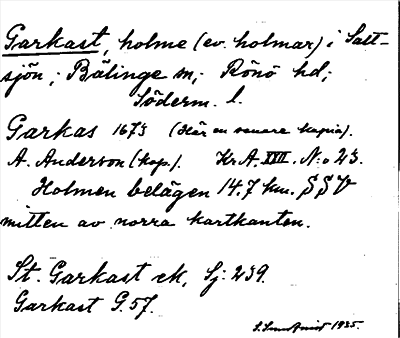 Garkast, holme (ev. holmar) i Salt-
sjön; Bälinge sn; Rönö hd;
Söderm. l.
Garkas 1673 (Här en senare kopia).
A. Anderson (kop.). Kr.A. XVII. N:o 23.
Holmen belägen 14.7 km. SSV
mitten av norra kartkanten.
St. Garkast ek, Sj: 239.
Garkast G.57.
1935.